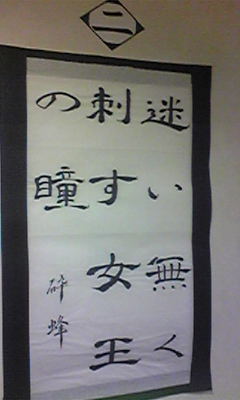 二
迷い無く
刺す女王
の瞳
砕蜂